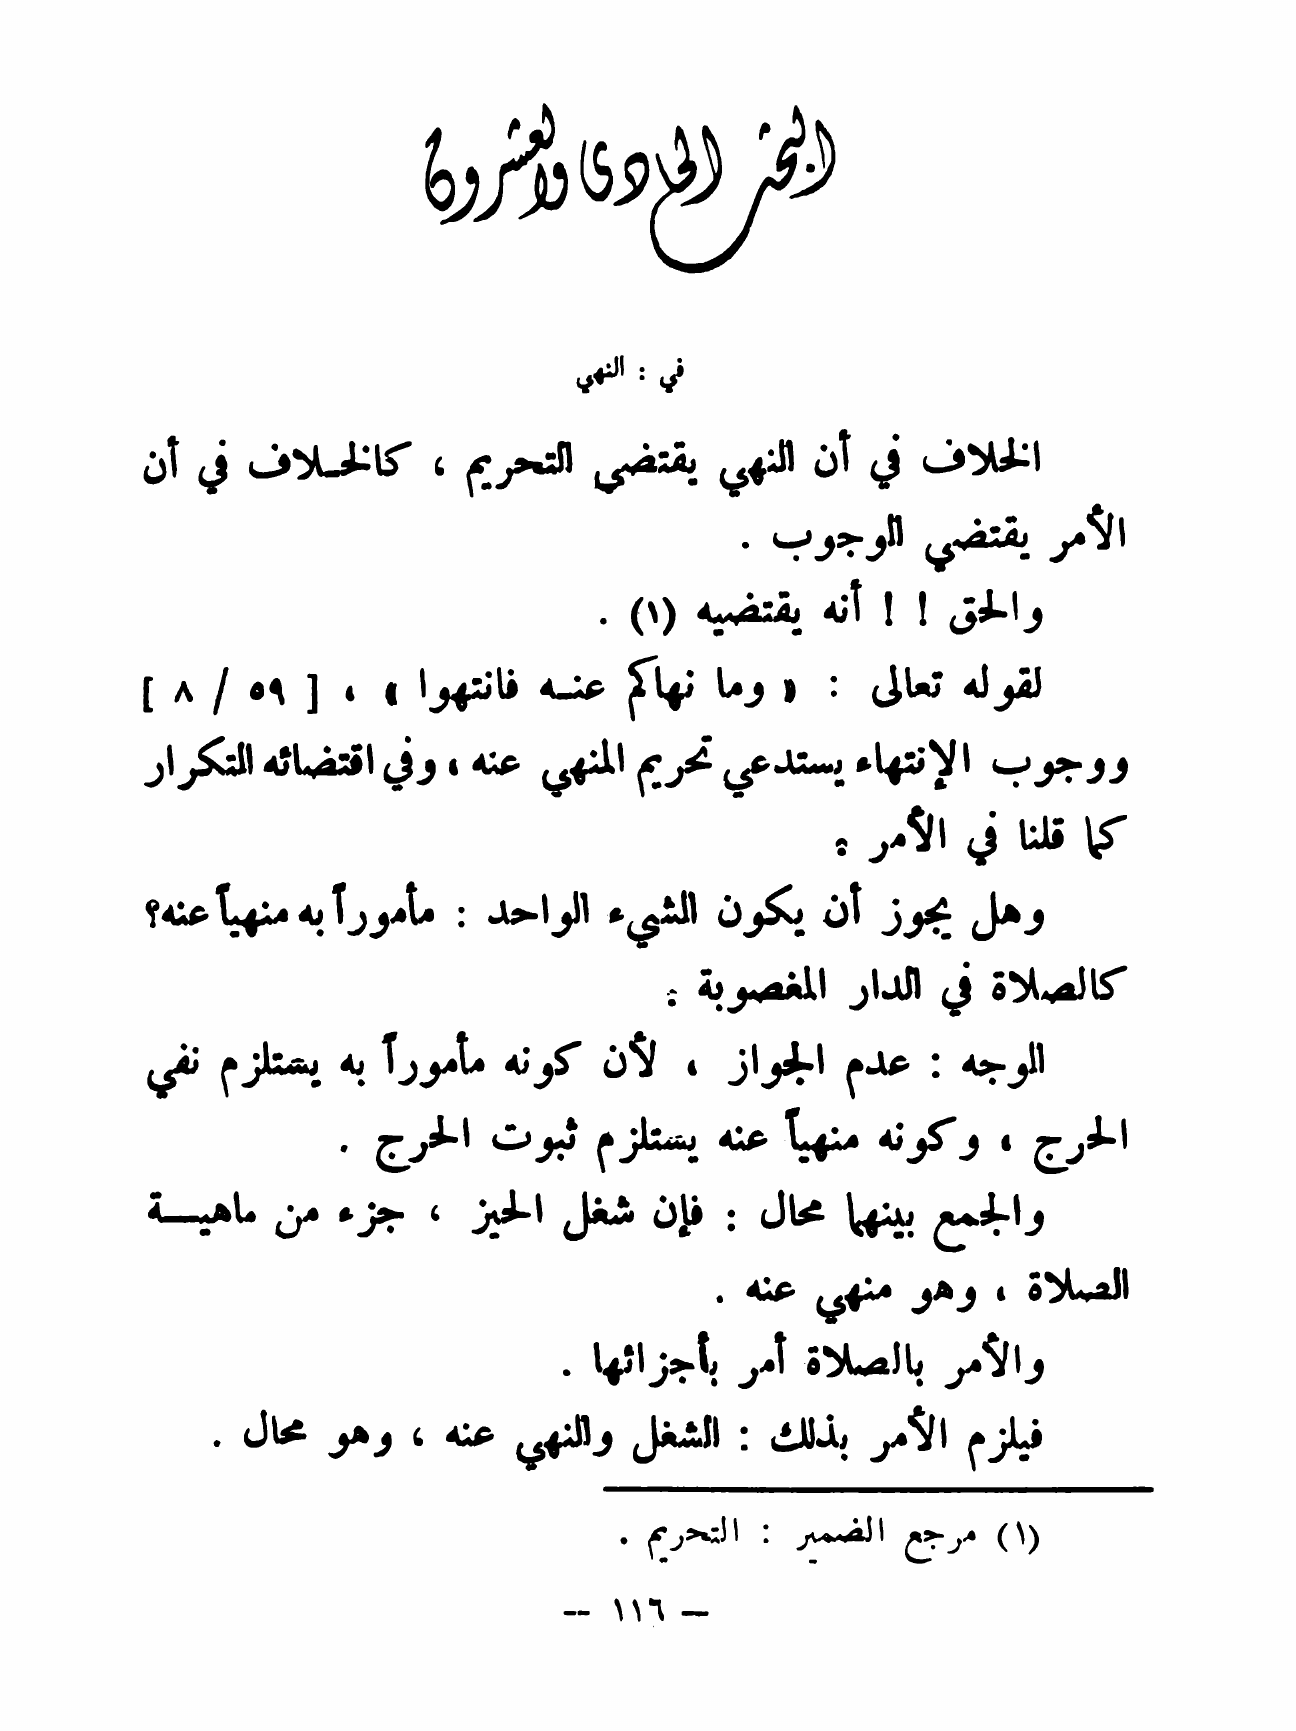 البحث الحادي والعشرون
في : النهي
الخلاف في أن النهي يقتضي التحريم ، كالخلاف في أن
الأمر يقتضي الوجوب .
والحق ! ! أنه يقتضيه (١) .
لقوله تعالى : « وما نهاكم عنه فانتهوا » ، [ ٥٩ / ٨ ]
ووجوب الإنتهاء يستدعي تحريم المنهي عنه ، وفي اقتضائه التكرار
كما قلنا في الأمر :
وهل يجوز أن يكون الشيء الواحد : مأموراً به منهياً عنه؟
كالصلاة في الدار المغصوبة :
الوجه : عدم الجواز ، لأن كونه مأموراً به يستلزم نفي
الحرج ، وكونه منهياً عنه يستلزم ثبوت الحرج .
والجمع بينهما محال : فإن شغل الحيز ، جزء من ماهية
الصلاة ، وهو منهي عنه .
والأمر بالصلاة أمر بأجزائها .
فيلزم الأمر بذلك : الشغل والنهي عنه ، وهو محال .
(١) مرجع الضمير : التحريم .
— ١١٦ --